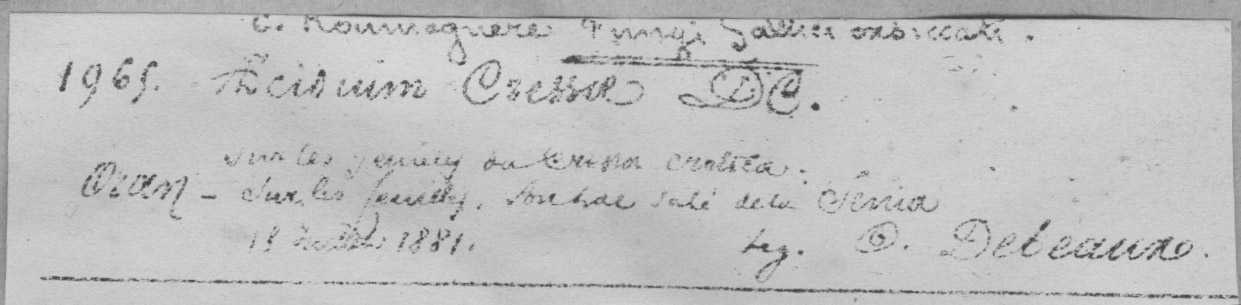 C. Roumeguere Fungi Gallici exsiccati.
1965. Æcidium Cressæ DC.
Sur les feuilles du Cressa cretica.
Oran – Sur les feuilles, salé de la Senia
1881. Leg. O. Debeaux.